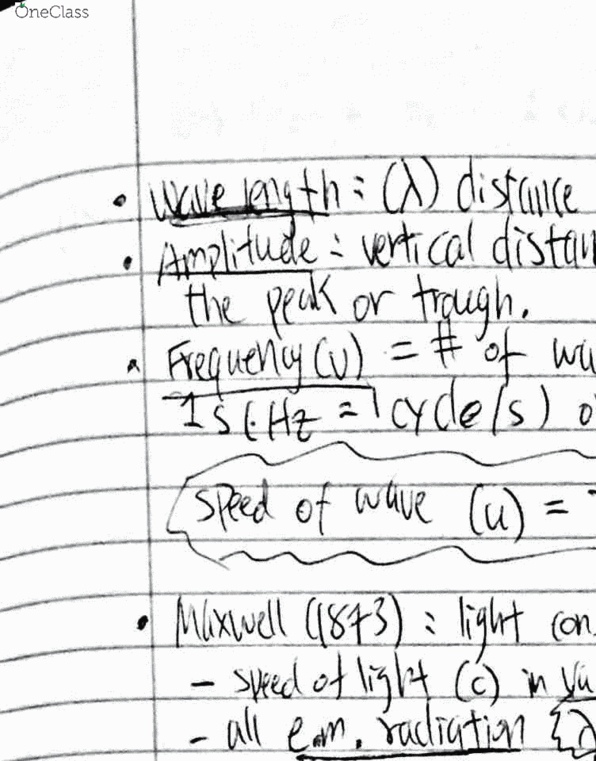 OneClass
• Wave length : (λ) distance
• Amplitude : vertical distan
the peak or trough.
• Frequency (ν) = # of wa
1s (Hz = 1 cycle/s) o
Speed of wave (u) =
• Maxwell (1873) : light con
- speed of light (c) in va
- all e.m. radiation {λ